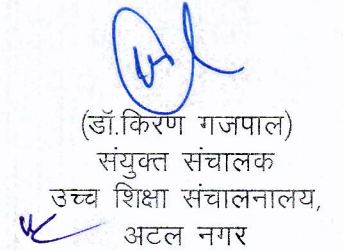 (डॉ.किरण गजपाल)
संयुक्त संचालक
उच्च शिक्षा संचालनालय,
अटल नगर